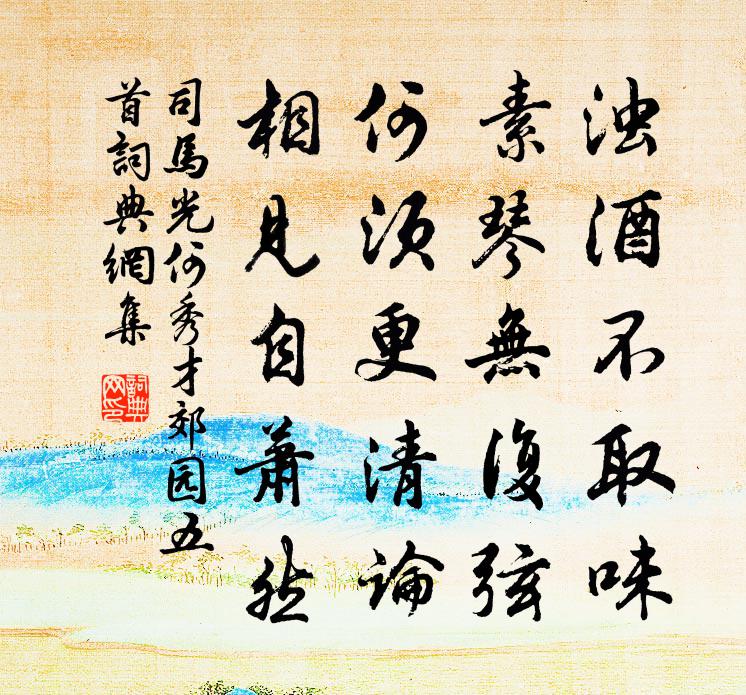 浊酒不取味
素琴無復弦
何須更清論
相見自蕭然
司馬光何秀才郊园五
首詞典網集
詞典网印